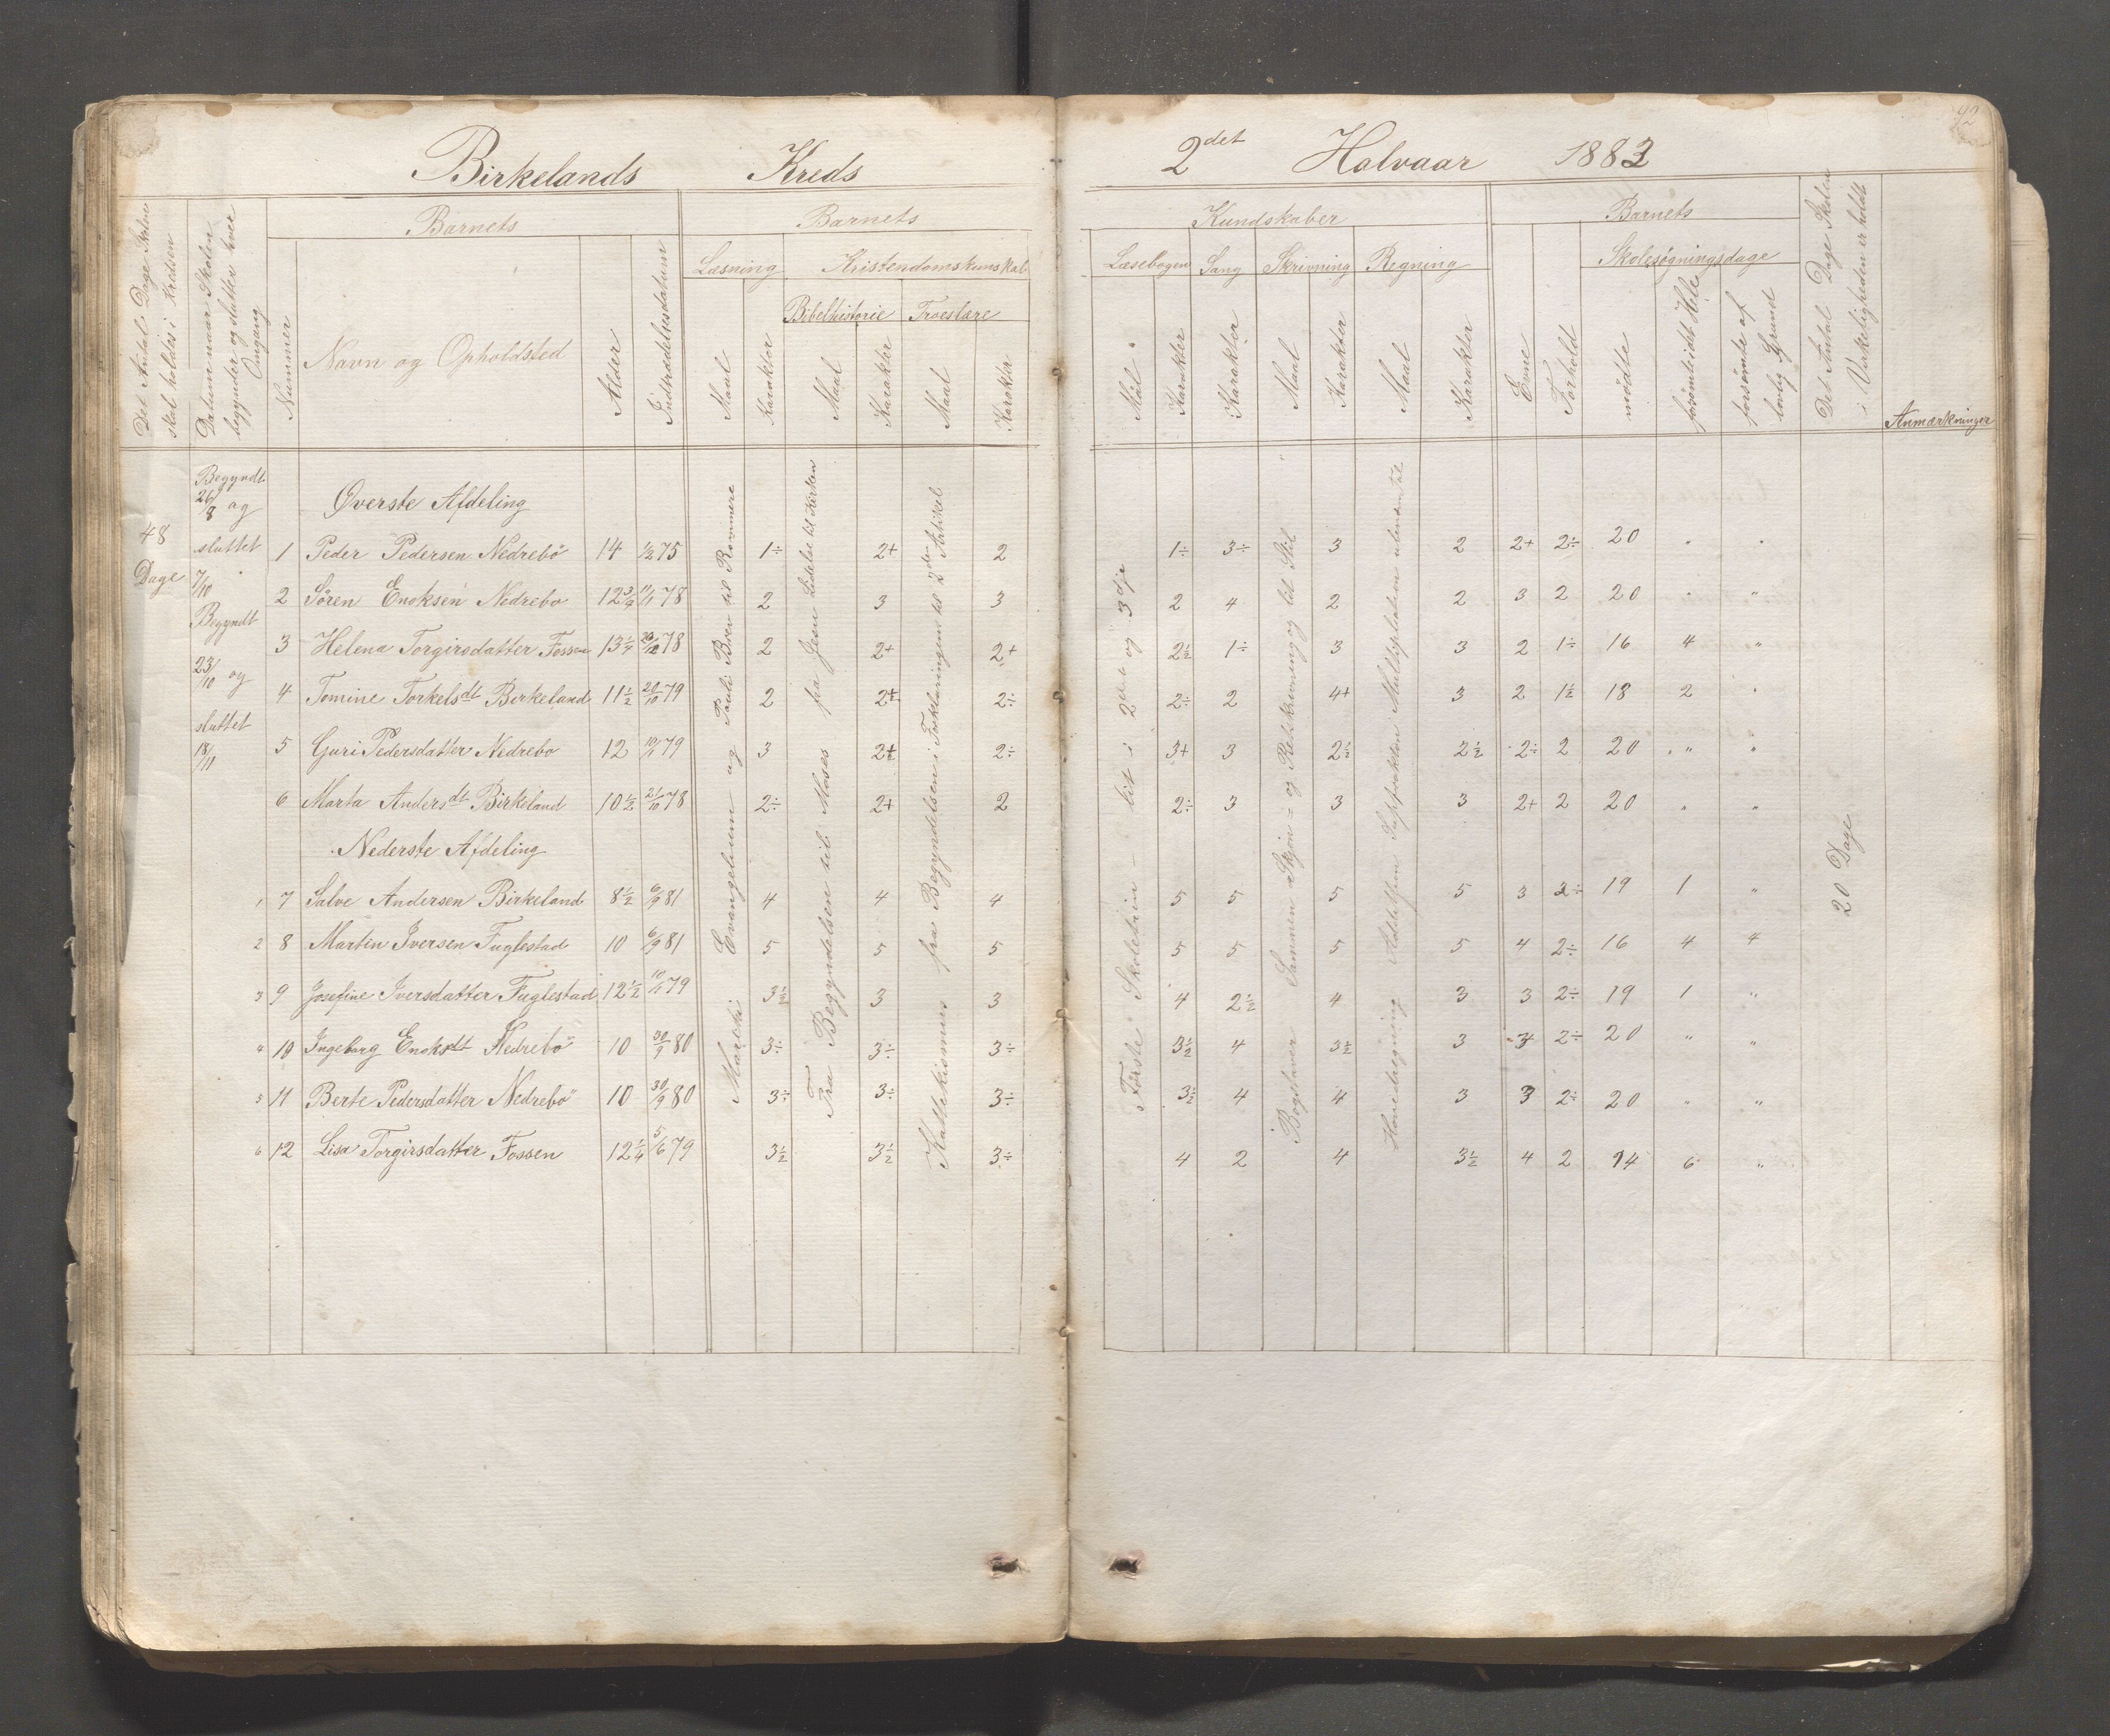 Birkelands Kreds
2det Halvaar 1883
92
Det Antal Dage Skolen skal holdes i Kredsen
Datum naar Skolen begynder og slutter hver Omgang
Barnets
Nummer
Navn og Opholdsted
Alder
Indtrædelsesdatum
Barnets
Læsning
Maal
Karakter
Kristendomskunskab
Bibelhistorie
Maal
Karakter
Troeslære
Maal
Karakter
Kundskaber
Læsebogen
Mål
Karakter
Sang
Karakter
Skrivning
Maal
Karakter
Regning
Maal
Karakter
Barnets
Evne
Forhold
Skolesøgningsdage
mødte
forsømte af lovlig Grund
Det Antal Dage Skolen i Virkeligheden er holdt
Anmærkninger
48 Dage
Begyndt
26/8 og
sluttet
7/10
Begyndt
23/10 og
sluttet
18/11
Øverste Afdeling
1 Peder Pedersen Nedrebö 14 1/2 75 1÷ 2+ 2 1÷ 3÷ 3 2 2+ 2÷ 20 " "
2 Sören Enoksen Nedrebo 12 11/1 78 2 3 3 2 4 2 2 3 2 20 " "
3 Helena Torgirsdatter Fossen 13 78 2 2+ 2+ 2½ 1÷ 3 3 2 1÷ 16 4 "
4 Tomine Torkelsdt Birkeland 11½ 20/10 79 2 2+ 2÷ 2÷ 2 4+ 3 2 1½ 18 2 "
5 Guri Pedersdatter Nedrebo 12 79 3 2+ 2÷ 3+ 3 2½ 2½ 2÷ 2 20 " "
6 Marta Andersdt Birkeland 10½ 21/10 78 2÷ 2+ 2 2÷ 3 3 3 2+ 2 20 " "
Nederste Afdeling
1 7 Salve Andersen Birkeland 8½ 6/9 81 4 4 4 5 5 5 5 3 2÷ 19 1 "
2 8 Martin Iversen Fuglestad 10 6/9 81 5 5 5 5 5 5 5 4 2÷ 16 4 4
3 9 Josefine Iversdatter Fuglestad 12½ 10/1 79 3½ 3 3 4 2½ 4 3 3 2÷ 19 1 "
4 10 Ingeborg Enoksdt Nedrebö 10 30/9 80 3÷ 3÷ 3÷ 3½ 4 3½ 3 3 2÷ 20 " "
5 11 Berte Pedersdatter Nedrebö 10 30/9 80 3÷ 3÷ 3÷ 3½ 4 4 3 3 2÷ 20 " "
6 12 Lisa Torgirsdatter Fossen 12¼ 5/6 79 3½ 3½ 3÷ 4 2 4 3½ 4 2 14 6 "
Marcki Evangelium og Pauli Brev til Rommere
Fra Begyndelsen til Moses fra Jesu Lidelse til Kirken
Kattekismus fra Begyndelsen i Forklaringen til 2den Artikel
Første Skoletrin lit i 2det og 3dje
Bogstaver Sammen Skjøn- og Retskrivning og lit Stil
Hovedregning Adstilfen Multiplikation
20 Dage